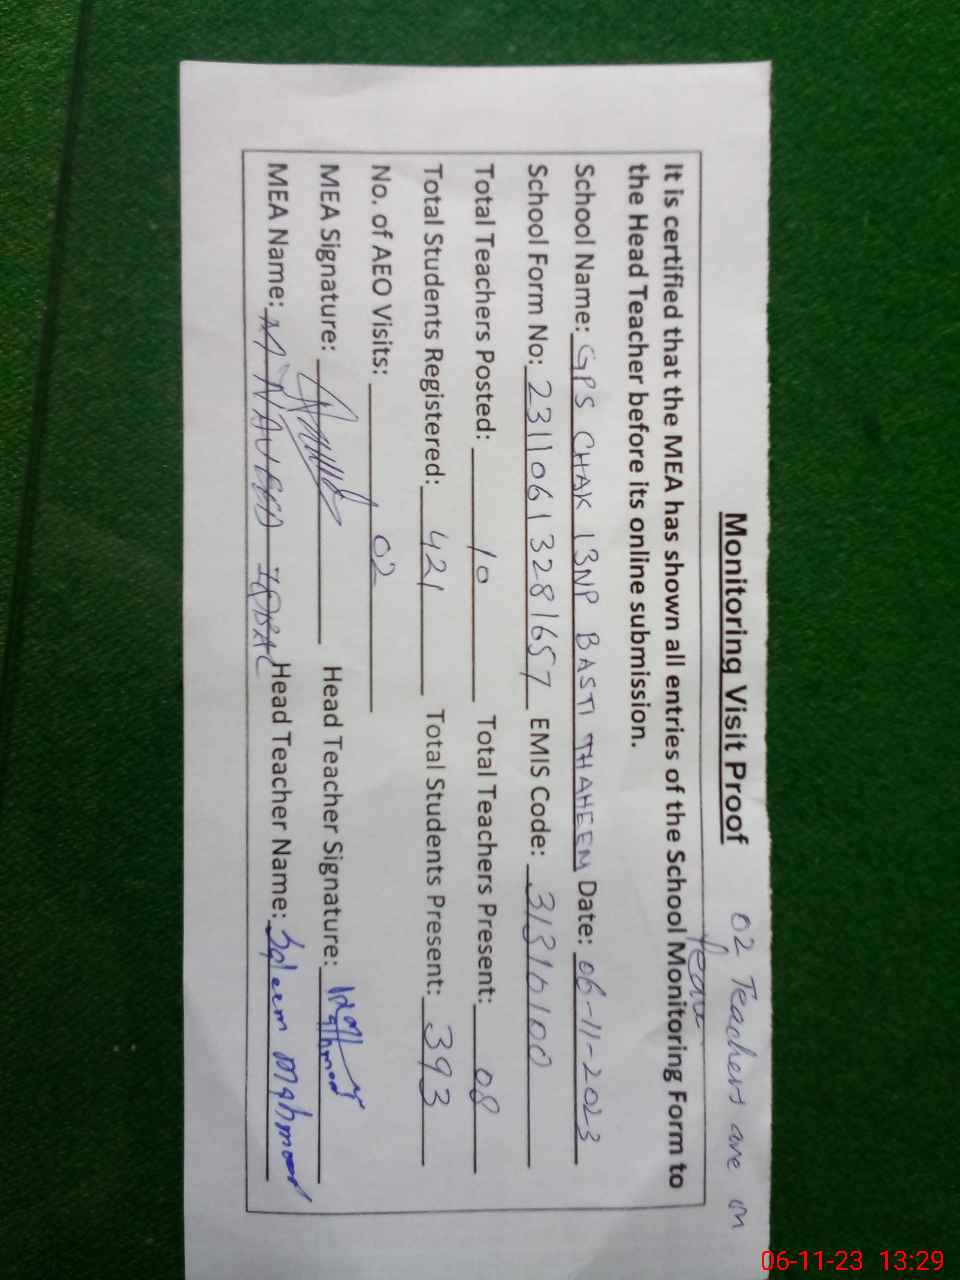 Monitoring Visit Proof 02 Teachers are on
leave
It is certified that the MEA has shown all entries of the School Monitoring Form to
the Head Teacher before its online submission.
School Name: GPS CHAK 13NP BASTI THAHEEM Date: 06-11-2023
School Form No: 23110613281657 EMIS Code: 31310100
Total Teachers Posted: 10 Total Teachers Present: 08
Total Students Registered: 421 Total Students Present: 393
No. of AEO Visits: 02
MEA Signature: Head Teacher Signature:
MEA Name: M NAVEED IQBAL Head Teacher Name: Saleem Mahmood
06-11-23 13:29